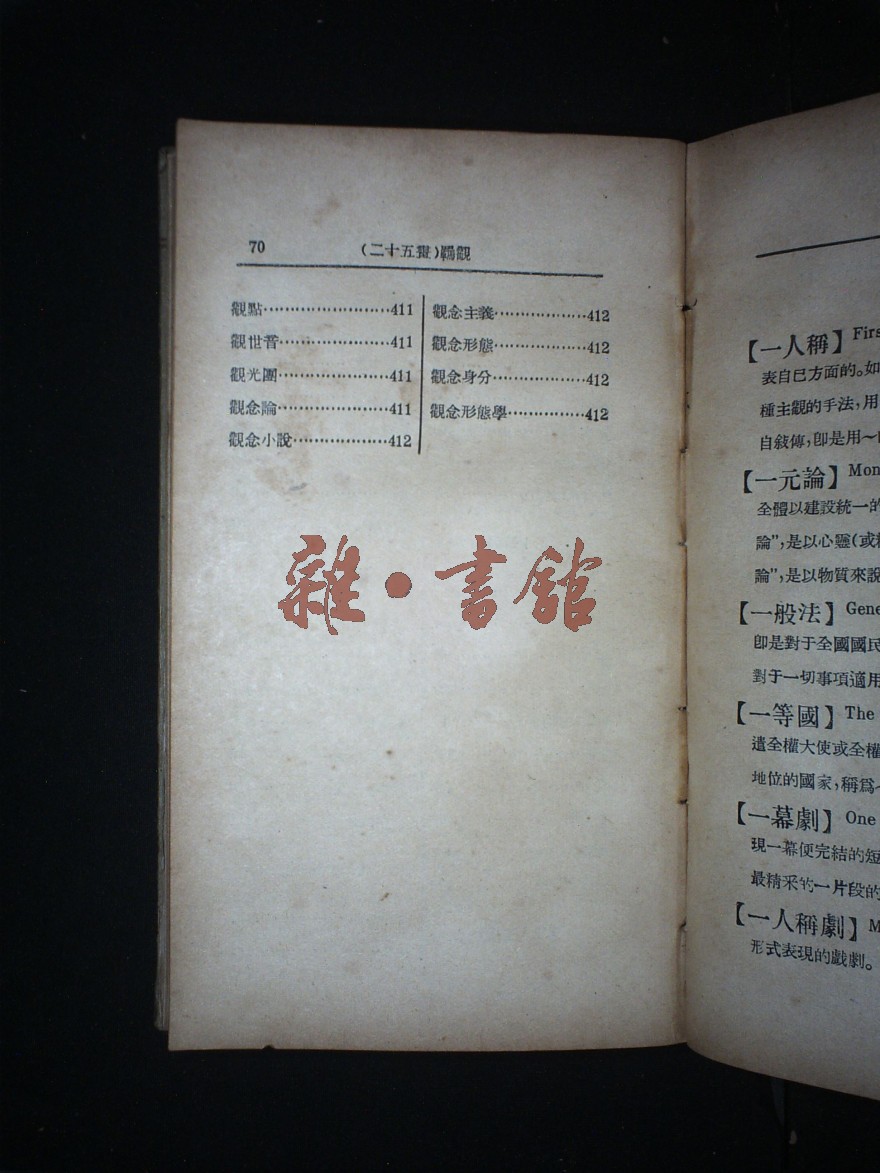 70
(二十五畫)羈觀
觀點························411
觀世音·····················411
觀光團·····················411
觀念論·····················411
觀念小說··················412
觀念主義··················412
觀念形態··················412
觀念身分··················412
觀念形態學···············412
雜·書館
【一人稱】 Firs
表自已方面的。如
種主觀的手法,用
自敍傳,卽是用～
【一元論】 Mon
全體以建設統一的
論”,是以心靈(或
論”,是以物質來說
【一般法】 Gene
卽是對于全國國民
對于一切事項適用
【一等國】 The
遣全權大使或全權
地位的國家,稱爲～
【一幕劇】 One
現一幕便完結的短
最精釆的一片段的
【一人稱劇】 M
形式表現的戲劇。